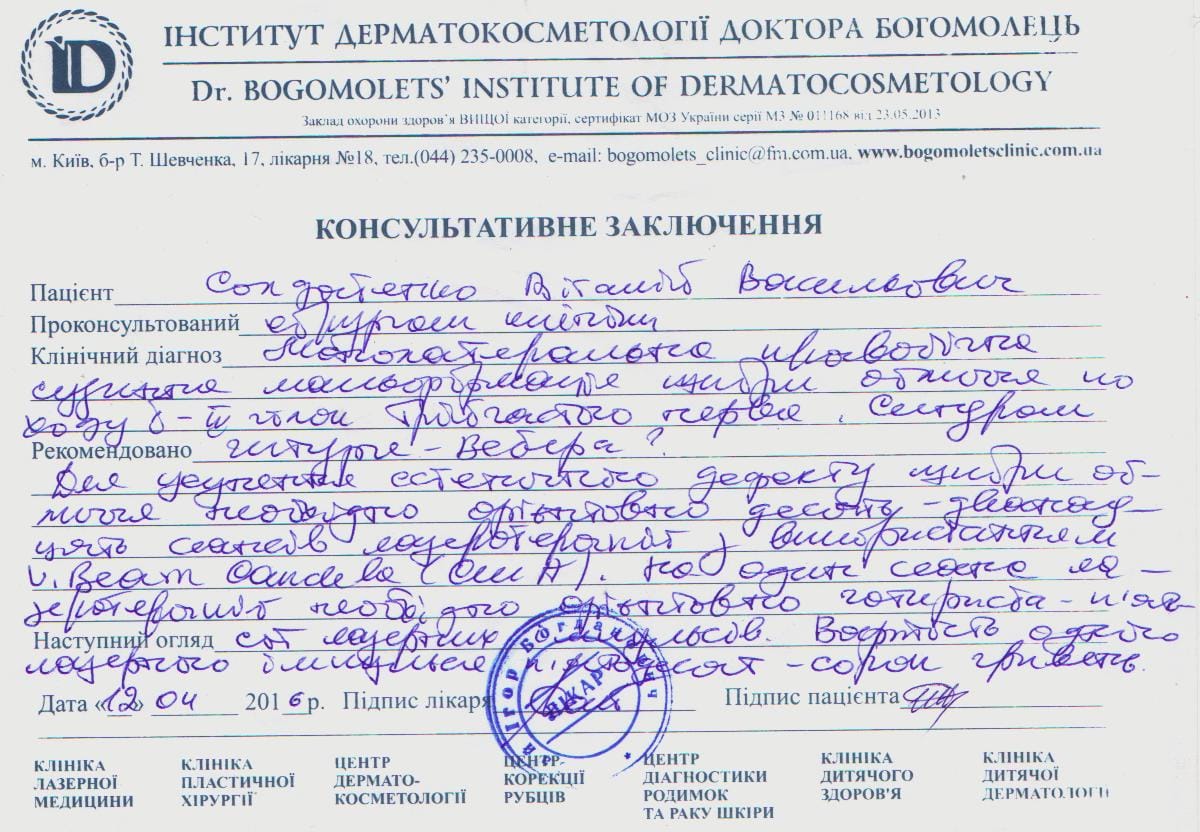 ІНСТИТУТ ДЕРМАТОКОСМЕТОЛОГІЇ ДОКТОРА БОГОМОЛЕЦЬ
Dr. BOGOMOLETS' INSTITUTE OF DERMATOCOSMETOLOGY
Заклад охорони здоров'я ВИЩОЇ категорії, сертифікат МОЗ України серії МЗ № 011168 від 23.05.2013
м. Київ, б-р Т. Шевченка, 17, лікарня №18, тел.(044) 235-0008, e-mail: bogomolets_clinic@fm.com.ua, www.bogomoletsclinic.com.ua
КОНСУЛЬТАТИВНЕ ЗАКЛЮЧЕННЯ
Пацієнт Віталій Васильович
Проконсультований хірургом клініки
Клінічний діагноз Монолатеральна правобічна
судинна мальформація шкіри обличчя по
ходу гілок трійчастого нерва. Синдром
Рекомендовано Вебера?
Для усунення естетичного дефекту шкіри об-
личчя необхідно орієнтовно десять-дванад-
цять сеансів лазеротерапії з використанням
V.Beam Candela (США). На один сеанс ла-
зеротерапії необхідно орієнтовно чотириста-п'ят-
Наступний огляд сот лазерних імпульсів. Вартість одного
лазерного імпульса -сорок гривень.
Дата «12» 04 2016р. Підпис лікаря Підпис пацієнта
Ігор Богданович
ЛІКАР
КЛІНІКА ЛАЗЕРНОЇ МЕДИЦИНИ
КЛІНІКА ПЛАСТИЧНОЇ ХІРУРГІЇ
ЦЕНТР ДЕРМАТО-КОСМЕТОЛОГІЇ
ЦЕНТР КОРЕКЦІЇ РУБЦІВ
ЦЕНТР ДІАГНОСТИКИ РОДИМОК ТА РАКУ ШКІРИ
КЛІНІКА ДИТЯЧОГО ЗДОРОВ'Я
КЛІНІКА ДИТЯЧОЇ ДЕРМАТОЛОГІЇ